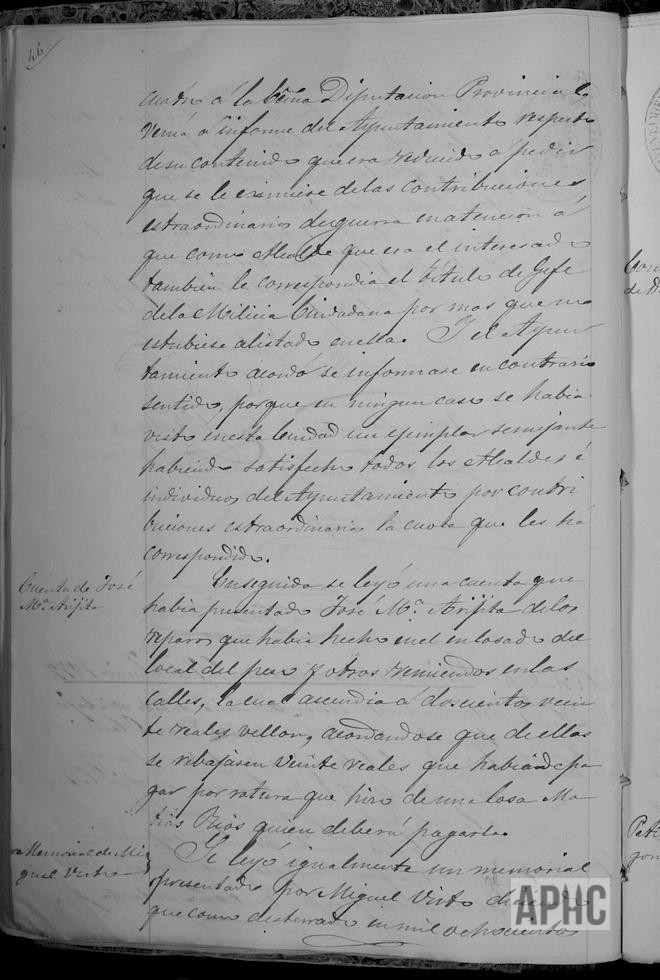 46
cuadro á la Exma Diputacion Provincial
venia á informe del Ayuntamiento respecto
de su contenido que era reducido á pedir
que se le eximiese de las contribuciones
estraordinarias de guerra en atencion á
que como Alcalde que era el interesado
tambien le correspondia el titulo de Gefe
de la Milicia Ciudadana por mas que no
estubiese alistado en ella. Y el Ayun
tamiento acordó se informase en contrario
sentido, porque en ningun caso se habia
visto en esta Ciudad un ejemplar semejante
habiendo satisfecho todos los Alcaldes é
individuos del Ayuntamiento por contri
buciones estraordinarias la cuota que les há
correspondido.
Cuenta de José
Mª Arijita
Enseguida se leyó una cuenta que
habia presentado José Mª Arijita de los
reparos que habia hecho en el enlosado del
local del peso y otros remiendos en las
calles, la cual ascendia á doscientos vein
te reales vellon, acordandose que de ellos
se rebajasen veinte reales que habian de pa
gar por rotura que hizo de una losa Ma
tias Rios quien deberá pagarla.
Memorial de Mi
guel Visto
Se leyó igualmente un memorial
presentado por Miguel Visto diciendo
que como desterrado en mil ochocientos
APHC